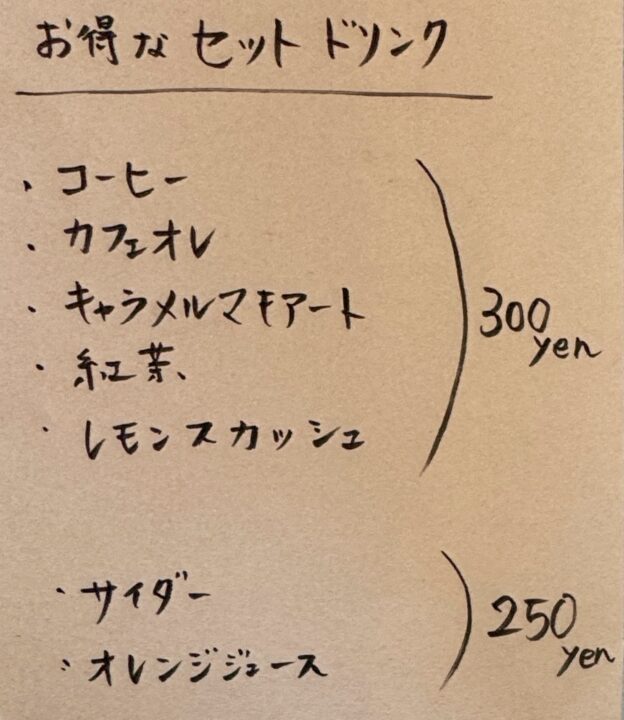 お得なセットドリンク
・コーヒー
・カフェオレ
・キャラメルマキアート
・紅茶、
・レモンスカッシュ
300
yen
・サイダー
・オレンジジュース
250
yen